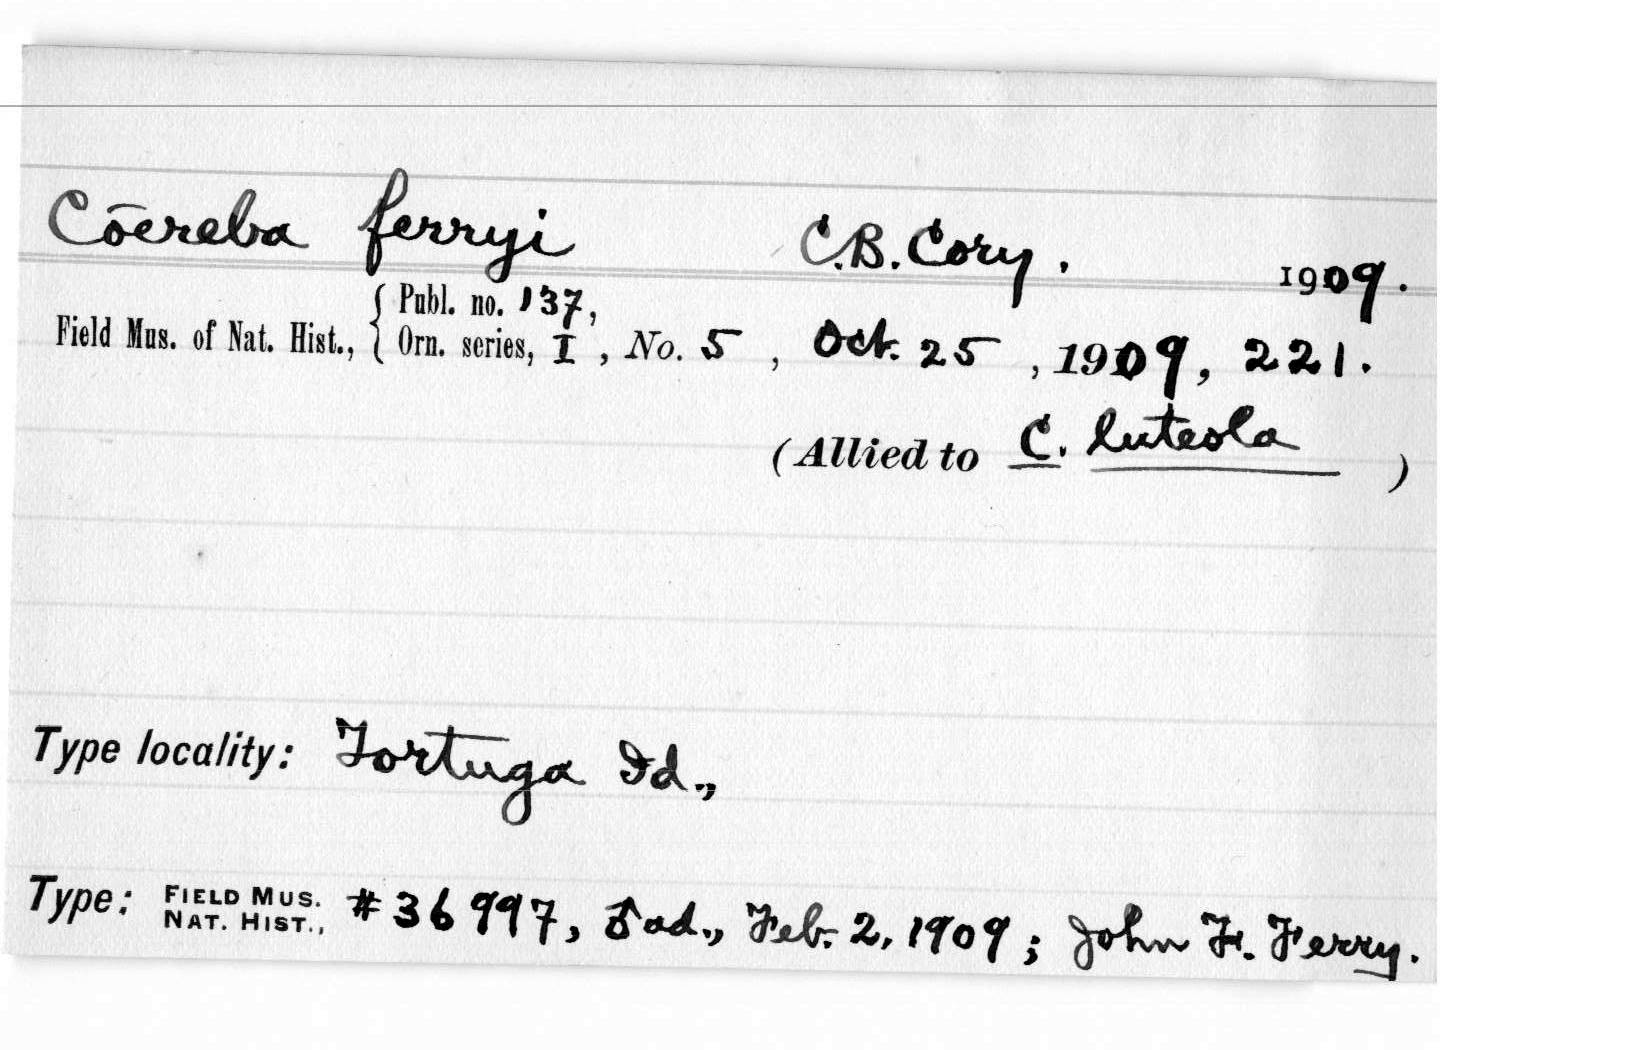 Cōereba ferryi C.B. Cory. 1909.
Field Mus. of Nat. Hist., { Publ. no. 137,
Orn. series, I , No. 5 , Oct. 25 , 1909, 221.
(Allied to C. luteola )
Type locality: Tortuga Id.,
Type: FIELD MUS. NAT. HIST., #36997, ♂ ad., Feb. 2, 1909; John F. Ferry.